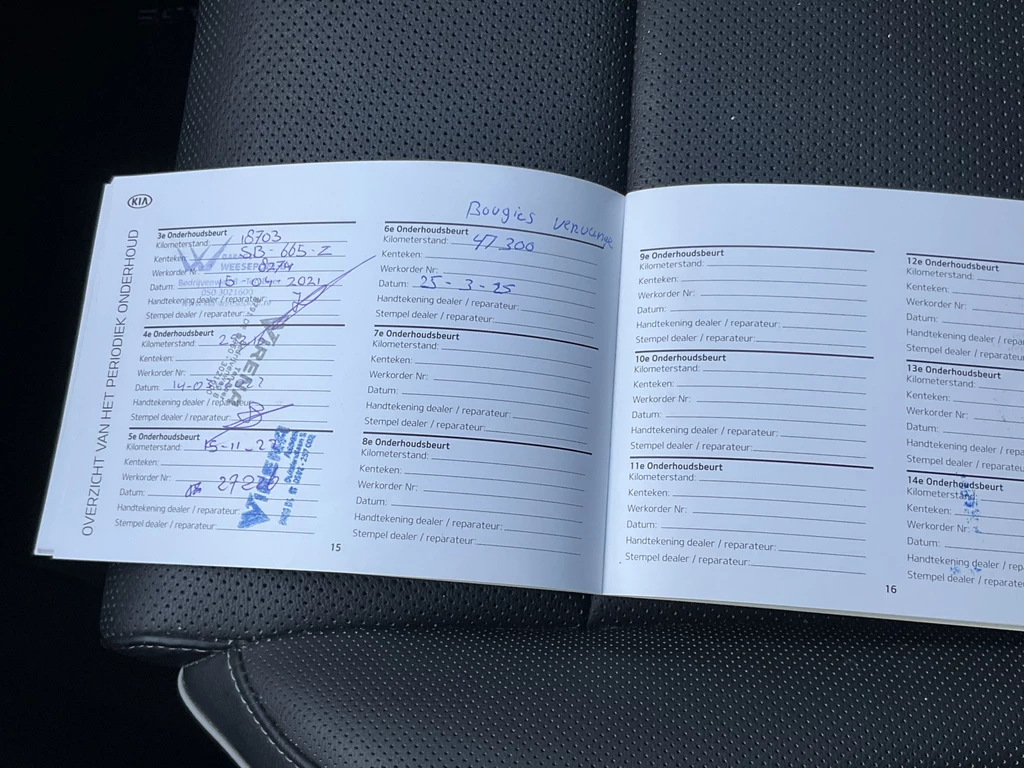 KIA
OVERZICHT VAN HET PERIODIEK ONDERHOUD
3e Onderhoudsbeurt
Kilometerstand: 18703
Kenteken: SB-665-Z
Werkorder Nr: 8274
Datum: 15-04-2021
Handtekening dealer / reparateur:
Stempel dealer / reparateur:
4e Onderhoudsbeurt
Kilometerstand:
Kenteken:
Werkorder Nr:
Datum:
Handtekening dealer / reparateur:
Stempel dealer / reparateur:
5e Onderhoudsbeurt
Kilometerstand: 15-11-22
Kenteken:
Werkorder Nr:
Datum:
Handtekening dealer / reparateur:
Stempel dealer / reparateur:
VARENA
15
Bougies vervangen
6e Onderhoudsbeurt
Kilometerstand: 47300
Kenteken:
Werkorder Nr:
Datum: 25-3-25
Handtekening dealer / reparateur:
Stempel dealer / reparateur:
7e Onderhoudsbeurt
Kilometerstand:
Kenteken:
Werkorder Nr:
Datum:
Handtekening dealer / reparateur:
Stempel dealer / reparateur:
8e Onderhoudsbeurt
Kilometerstand:
Kenteken:
Werkorder Nr:
Datum:
Handtekening dealer / reparateur:
Stempel dealer / reparateur:
9e Onderhoudsbeurt
Kilometerstand:
Kenteken:
Werkorder Nr:
Datum:
Handtekening dealer / reparateur:
Stempel dealer / reparateur:
10e Onderhoudsbeurt
Kilometerstand:
Kenteken:
Werkorder Nr:
Datum:
Handtekening dealer / reparateur:
Stempel dealer / reparateur:
11e Onderhoudsbeurt
Kilometerstand:
Kenteken:
Werkorder Nr:
Datum:
Handtekening dealer / reparateur:
Stempel dealer / reparateur:
16
12e Onderhoudsbeurt
Kilometerstand:
Kenteken:
Werkorder Nr:
Datum:
Handtekening dealer / repara
Stempel dealer / reparate
13e Onderhoudsbeurt
Kilometerstand:
Kenteken:
Werkorder Nr:
Datum:
Handtekening dealer / repara
Stempel dealer / reparate
14e Onderhoudsbeurt
Kilometerstand:
Kenteken:
Werkorder Nr:
Datum:
Handtekening dealer / repara
Stempel dealer / reparate